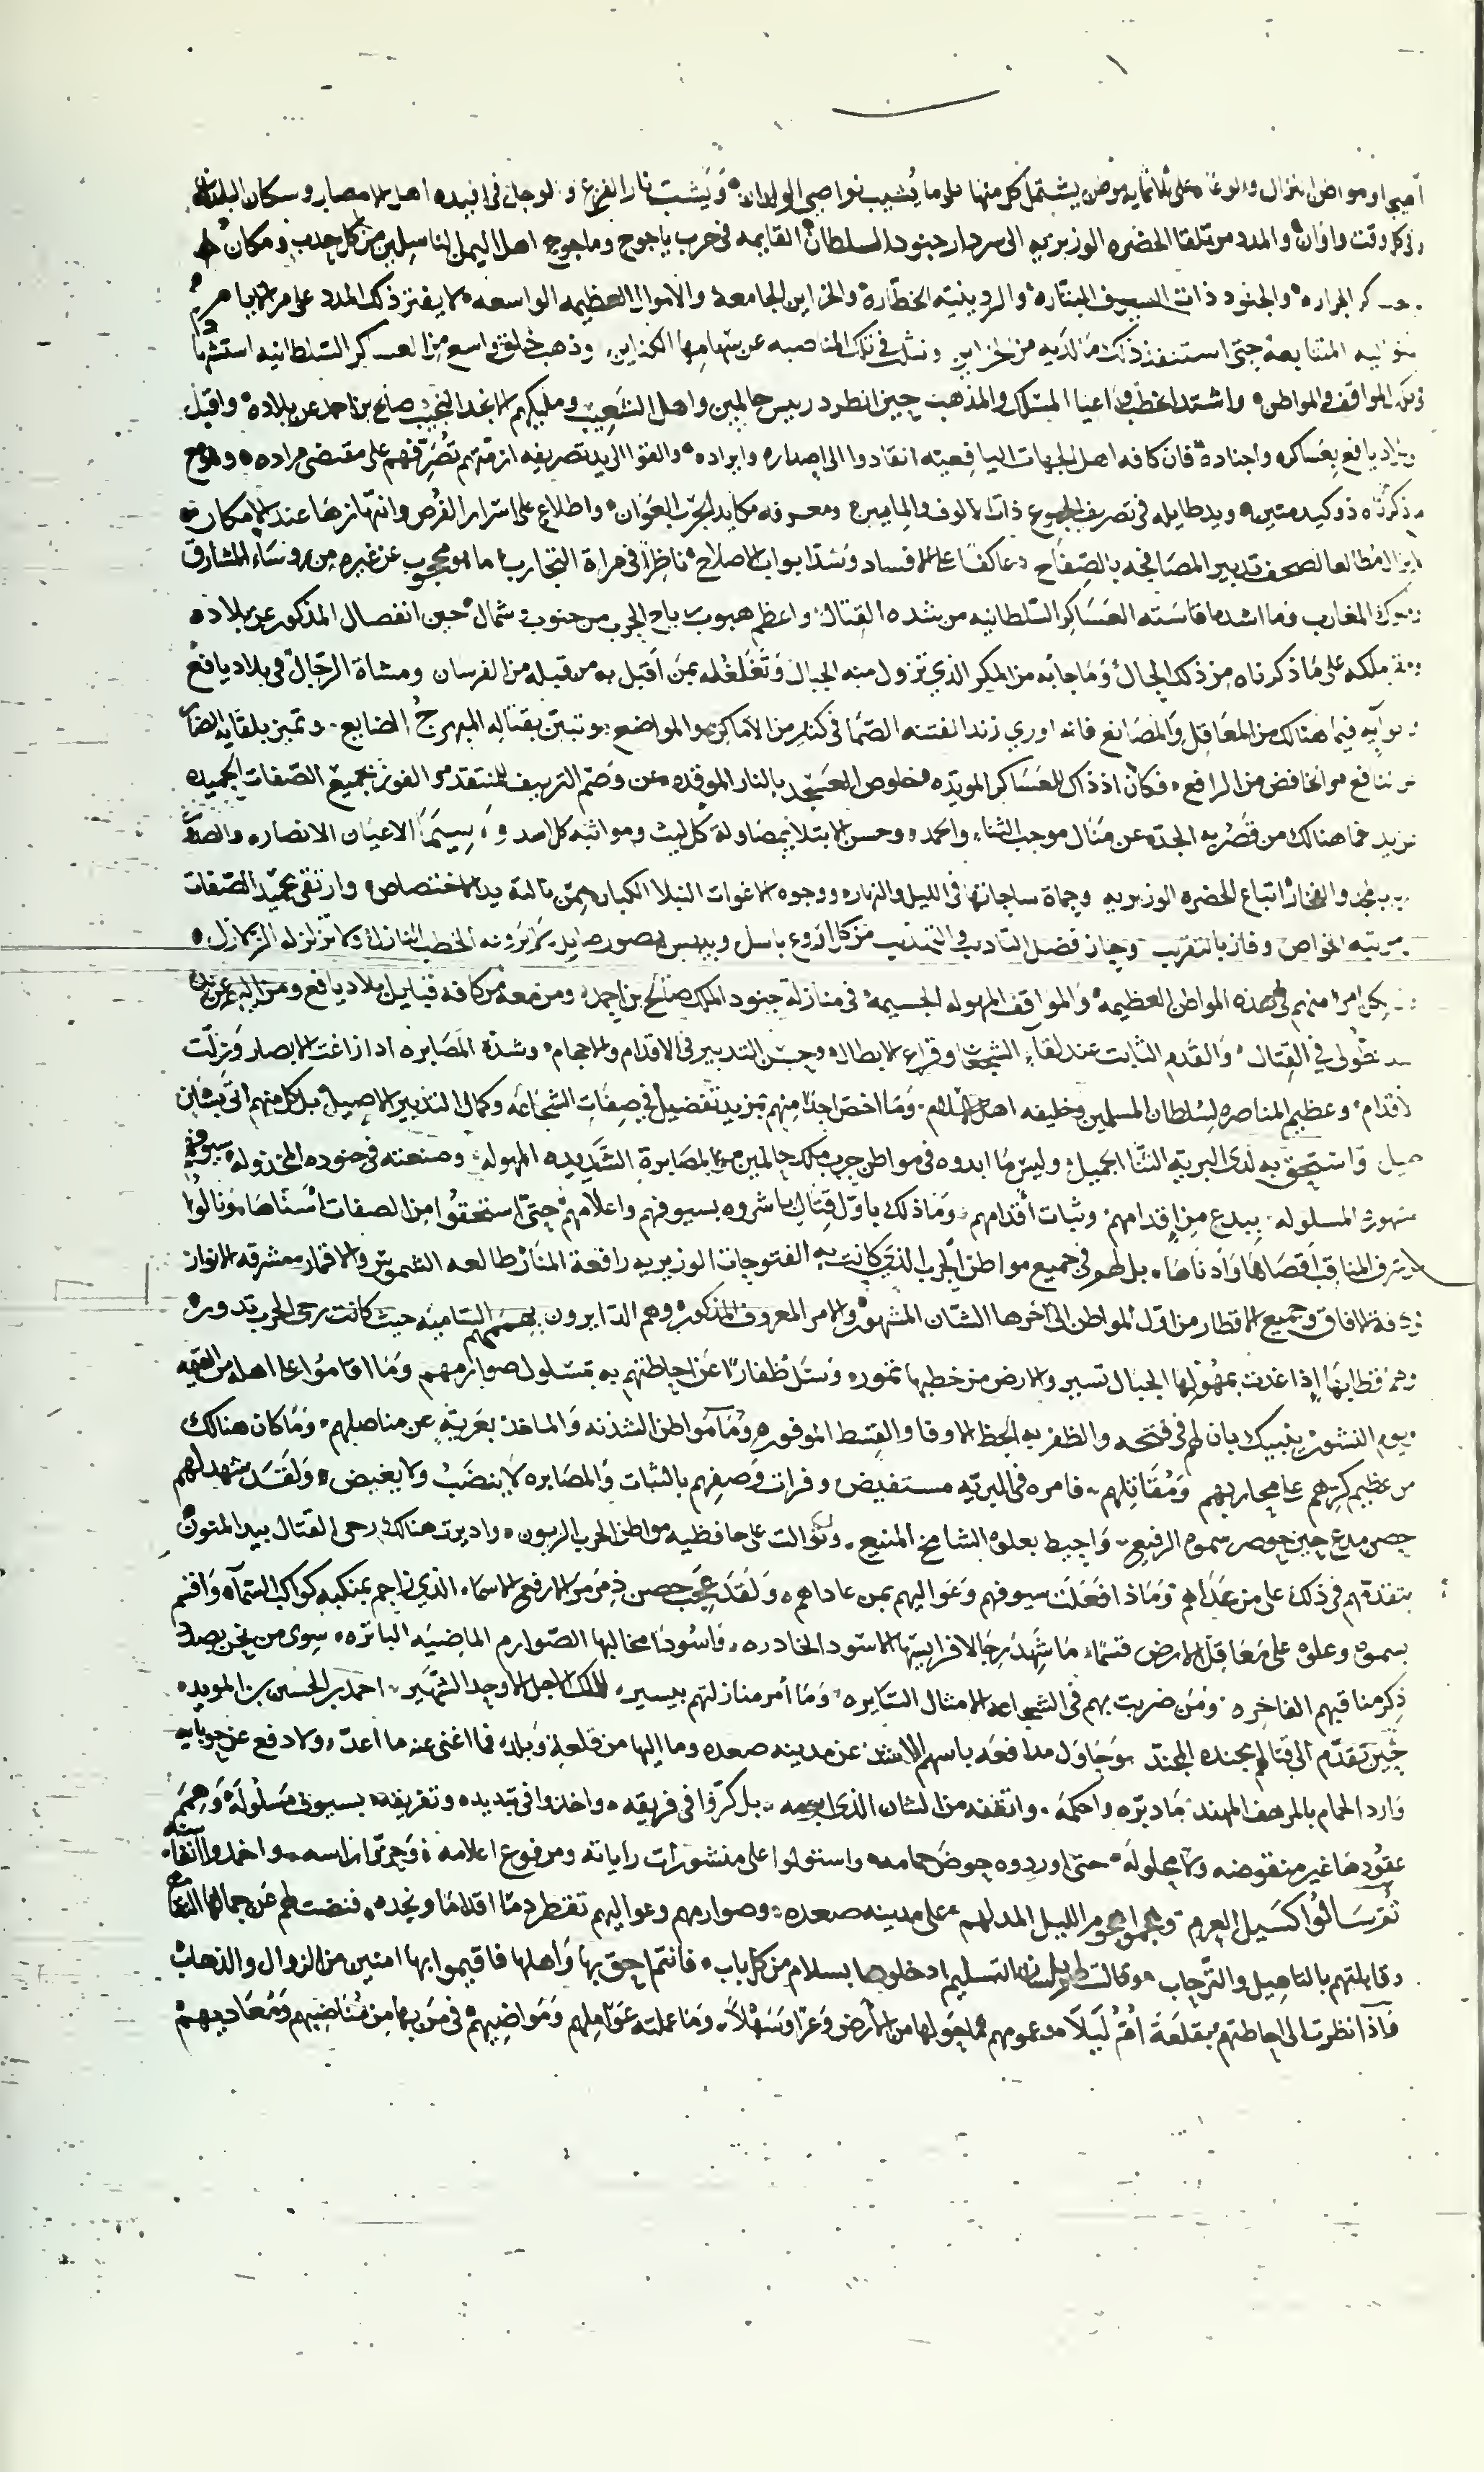 ومواضع النزال يشتمل كل منها على ما يشيب نواصي الولدان وتشب نار الفزع والوجل في افئده اهل الامصار وسكان البلدان
وفي كل وقت واوان والمدد من تلقا الحضره الوزيريه الى سردار جنود السلطان القايمه في حرب ياجوج وماجوج اهل اليمن الناسلين من كل حدب ومكان
الجراره والجنود ذات السيوف البتاره والردينيه الخطاره والخزاين الجامعة والاموال العظيمه الواسعه لا يفتر ذلك المدد على مر الايام
المتتابعه حتى استنفذ ذلك ما لديه من الخزاين ونثلت في تلك المناصبه عن سهامها الكناين وذهب خلق واسع من العساكر السلطانيه استشهدوا
في تلك المواقف والمواطن واشتد الخطب واعيا المسلك والمذهب حين انطرد رييس حالمين واهل الشعيب ومليكهم صالح بن احمد عن بلاده واقبل
يافع بعساكره واجناده فان كافه اهل الجهات اليافعيه انقادوا الى اصداره وايراده والقوا الى يد تصريفه ازمتهم تصرفهم على مقتضى مراده وهو مع
ما ذكرناه ذو كيد متين ويد طايله في تصريف الجموع ذات الالوف والمايين ومعرفه مكايد الحرب العوان واطلاع على اسرار الفرص وانتهازها عند الامكان
مطالعا لصحف تدبير المصافحه بالصفاح عاكفا على الافساد وسد ابواب الاصلاح ناظرا في مراة التجارب ما هو محجوب عن غيره من روساء المشارق
وملوك المغارب فما اشد ما قاسته العساكر السلطانيه من شده القتال واعظم هبوب رياح الحرب من جنوب وشمال حين انفصال المذكور عن بلاده
ملكه على ما ذكرناه من ذلك الحال وما جا به من المكر الذي تزول منه الجبال وتغلغله بمن اقبل به من قبله من الفرسان ومشاة الرجال في بلاد يافع
فيما هنالك من المعاقل والمصانع فانه اورى زند الفتنه الصما في كثير من الاماكن والمواضع وتبين بقتاله المبهرج الضايع وتميز بلقايه
النافع من الخافض من الرافع فكان اذ ذاك للعساكر المويده خلوص العسجد بالنار الموقده من وصم التزييف للمنتقد مع الفوز بجميع الصفات الحميده
فما هنالك من قصر به الجد عن منال موجب الثناء والحمد وحسن الابتلا بمصاولة كل ليث ومواثبه كل اسد ولا سيما الاعيان الانصار
والفخار اتباع الحضره الوزيريه وحماة ساحاتها في الليل والنهار ووجوه الاغوات النبلا الكبار ممن نالته يد الاختصاص وارتقى بحميد الصفات
مرتبه الخواص وفاز بالتقريب وحاز فضل التاديب والتهذيب من كل اروع باسل وبيهس هصور صايل لا يروعه الخطب النازل ولا تزلزله الزلازل
امرا منهم في هذه المواطن العظيمه والمواقف المهوله الجسيمه في منازلة جنود الملك صالح بن احمد ومن معه من كافه قبايل بلاد يافع
الطولى في القتال والقدم الثابت عند لقاء الشجعان وقراع الابطال وحسن التدبير في الاقدام والاحجام وشدة المصابره اذا زاغت الابصار وزلت
الاقدام وعظيم المناصره لسلطان المسلمين وخليفه اهل الاسلام وما اخص احدا منهم بمزيد تفضيل في صفات الشجاعه وكمال التدبير الاصيل بل كل منهم اتى بشان
جميل واستحق به لدى البريه الثنا الجميل وليس ما ابدوه في مواطن حرب ملك حالمين من المصابرة الشديده المهوله وصنعته في جنوده المخذوله سيوفهم
المسلوله ببدع من اقدامهم وثبات اقدامهم وما ذلك باول قتال باشروه بسيوفهم واعلامهم حتى استحقوا من الصفات اسناها ونالوا
شرف المناقب اقصاها وادناها بل لهم في جميع مواطن الحرب الذي كانت به الفتوحات الوزيريه رافعة المنار طالعه الشموس والاقمار مشرقه الانوار
كافة الافاق وجميع الاقطار من اول المواطن الى اخرها الشان المشهور والامر المعروف المذكور وهم الدايرون بهممهم الساميه حيث كانت رحى الحرب تدور
وهم قطبها اذا غدت بمهولها الجبال تسير والارض من خطبها تمور وسل ظفارا عن احاطتهم به بمسلول صوارمهم وما اقاموا على اهله من القيمه
يوم النشور ينبيك بان لهم في فتحه والظفر به الحظ الاوفا والقسط الموفور وما مواطن الشذنه والماخذ بغريبه عن مناصلهم وما كان هنالك
من عظيم كرهم على محاربهم ومقاتلهم فامره في البريه مستفيض وفرات وصفهم بالثبات والمصابره لا ينضب ولا يغيض ولقد شهد لهم
حصن مدع حين حوصر سموه الرفيع واحيط بعلوه الشامخ المنيع وتوالت على حافظيه مواطن الحرب الزبون واديرت هنالك رحى القتال بيد المنون
بتقدمهم في ذلك على من عداهم وماذا فعلت سيوفهم وعواليهم بمن عاداهم ولقد عجب حصن ذمرمر الارفع الاسماء الذي زاحم بمنكبه كواكب السماء واقسم
بسموه وعلوه على معاقل الارض قسما ما شهد رجالا فرايسها الاسود الخادره واسودا مخالبها الصوارم الماضيه الباتره سوى من نحن بصدد
ذكر مناقبهم الفاخره ومن ضربت بهم في الشجاعه الامثال السايره وما امر منازلتهم بيسير للملك الاجل الاوحد الشهير احمد بن الحسين بن المويد
حين تقدم الى قتالهم بجنده المجند وحاول مدافعه باسهم الاشد عن مدينه صعده وما اليها من قلعة وبلد فما اغنى عنه ما اعد ولا دفع عن حوبايه
وارد الحمام بالمرهف المهند ما دبره واحكمه واتقنه من الشان الذي ابرمه بل كروا في فريقه واخذوا في تبديده وتفريقه بسيوف مسلوله وهمم
عقودها غير منقوضه ولا محلوله حتى اوردوه حوض حمامه واستولوا على منشورات راياته ومرفوع اعلامه وحزوا راسه واخمدوا انفاسه
ثم سالوا كسيل العرم وهجموا هجوم الليل المدلهم على مدينه صعده وصوارمهم وعواليهم تقطر دما اقداما ونجده فنضت لهم عن جمالها
وقابلتهم بالتاهيل والترحاب وقالت لهم بلسان التسليم ادخلوها بسلام من كل باب فانتم احق بها واهلها فاقيموا بها امنين من الزوال والذهاب
فاذا نظرت الى احاطتهم بقلعة ام ليلا وعمومهم لما حولها من الارض وعرا وسهلا وما عملته عواملهم ومواضيهم في من بها من مناضبهم ومعاديهم